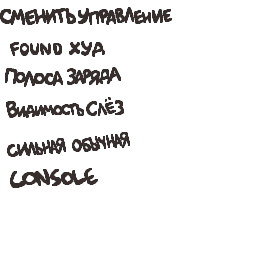 СМЕНИТЬ УПРАВЛЕНИЕ
FOUND ХУД
ПОЛОСА ЗАРЯДА
ВИДИМОСТЬ СЛЁЗ
СИЛЬНАЯ ОБЫЧНАЯ
CONSOLE